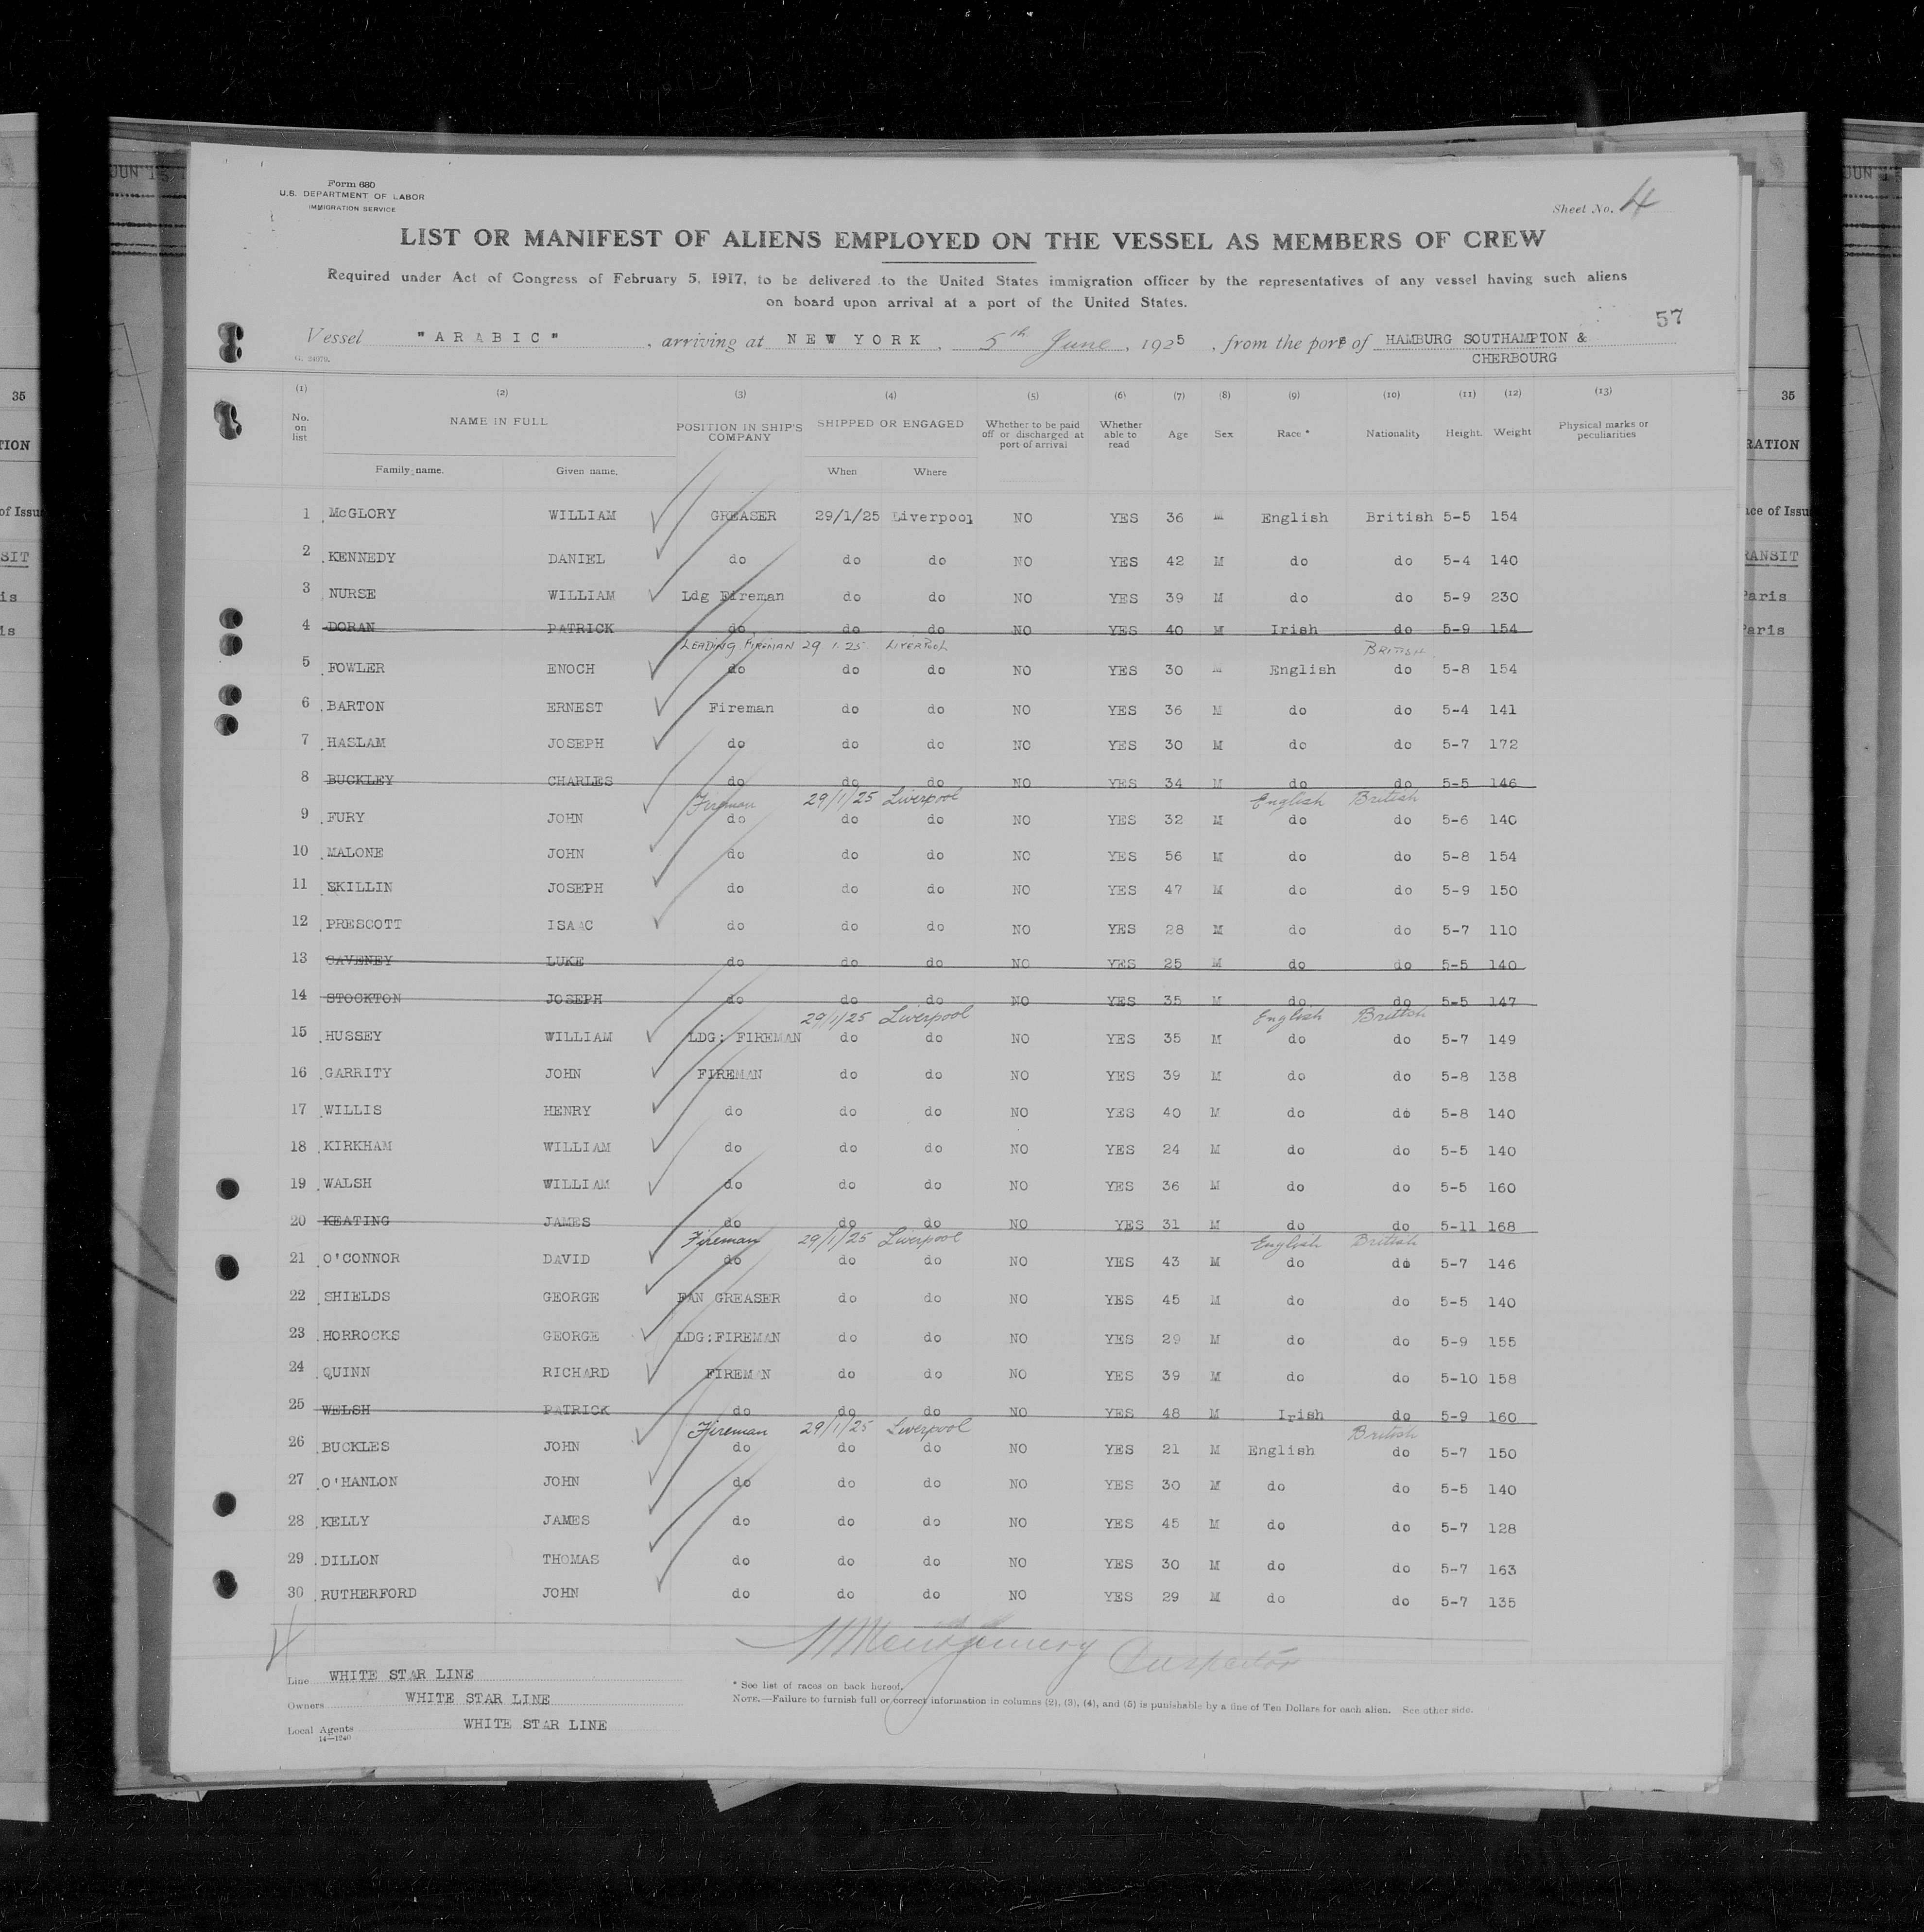 Form 680
U.S. DEPARTMENT OF LABOR
IMMIGRATION SERVICE
Sheet No. 4
LIST OR MANIFEST OF ALIENS EMPLOYED ON THE VESSEL AS MEMBERS OF CREW
Required under Act of Congress of February 5, 1917, to be delivered to the United States immigration officer by the representatives of any vessel having such aliens
on board upon arrival at a port of the United States.
57
Vessel "ARABIC", arriving at NEW YORK, 5th June, 1925, from the port of HAMBURG SOUTHAMPTON &
CHERBOURG
G. 24079.
(1) (2) (3) (4) (5) (6) (7) (8) (9) (10) (11) (12) (13)
No. on list NAME IN FULL POSITION IN SHIP'S COMPANY SHIPPED OR ENGAGED Whether to be paid off or discharged at port of arrival Whether able to read Age Sex Race * Nationality Height. Weight Physical marks or peculiarities
Family name. Given name. When Where
1 McGLORY WILLIAM GREASER 29/1/25 Liverpool NO YES 36 M English British 5-5 154
2 KENNEDY DANIEL do do do NO YES 42 M do do 5-4 140
3 NURSE WILLIAM Ldg Fireman do do NO YES 39 M do do 5-9 230
4 DORAN PATRICK do do do NO YES 40 M Irish do 5-9 154
LEADING FIREMAN 29.1.25 LIVERPOOL BRITISH
5 FOWLER ENOCH do do do NO YES 30 M English do 5-8 154
6 BARTON ERNEST Fireman do do NO YES 36 M do do 5-4 141
7 HASLAM JOSEPH do do do NO YES 30 M do do 5-7 172
8 BUCKLEY CHARLES do do do NO YES 34 M do do 5-5 146
Fireman 29/1/25 Liverpool English British
9 FURY JOHN do do do NO YES 32 M do do 5-6 140
10 MALONE JOHN do do do NO YES 56 M do do 5-8 154
11 SKILLIN JOSEPH do do do NO YES 47 M do do 5-9 150
12 PRESCOTT ISAAC do do do NO YES 28 M do do 5-7 110
13 CAVENEY LUKE do do do NO YES 25 M do do 5-5 140
14 STOCKTON JOSEPH do do do NO YES 35 M do do 5-5 147
29/1/25 Liverpool English British
15 HUSSEY WILLIAM LDG: FIREMAN do do NO YES 35 M do do 5-7 149
16 GARRITY JOHN FIREMAN do do NO YES 39 M do do 5-8 138
17 WILLIS HENRY do do do NO YES 40 M do do 5-8 140
18 KIRKHAM WILLIAM do do do NO YES 24 M do do 5-5 140
19 WALSH WILLIAM do do do NO YES 36 M do do 5-5 160
20 KEATING JAMES do do do NO YES 31 M do do 5-11 168
Fireman 29/1/25 Liverpool English British
21 O'CONNOR DAVID do do do NO YES 43 M do do 5-7 146
22 SHIELDS GEORGE FAN GREASER do do NO YES 45 M do do 5-5 140
23 HORROCKS GEORGE LDG:FIREMAN do do NO YES 29 M do do 5-9 155
24 QUINN RICHARD FIREMAN do do NO YES 39 M do do 5-10 158
25 WELSH PATRICK do do do NO YES 48 M Irish do 5-9 160
Fireman 29/1/25 Liverpool British
26 BUCKLES JOHN do do do NO YES 21 M English do 5-7 150
27 O'HANLON JOHN do do do NO YES 30 M do do 5-5 140
28 KELLY JAMES do do do NO YES 45 M do do 5-7 128
29 DILLON THOMAS do do do NO YES 30 M do do 5-7 163
30 RUTHERFORD JOHN do do do NO YES 29 M do do 5-7 135
Montgomery Inspector
Line WHITE STAR LINE
Owners WHITE STAR LINE
Local Agents WHITE STAR LINE
14—1240
* See list of races on back hereof.
NOTE.—Failure to furnish full or correct information in columns (2), (3), (4), and (5) is punishable by a fine of Ten Dollars for each alien. See other side.
JUN 15
35
TION
of Issu
SIT
is
is
JUN
35
RATION
ace of Issu
RANSIT
Paris
Paris